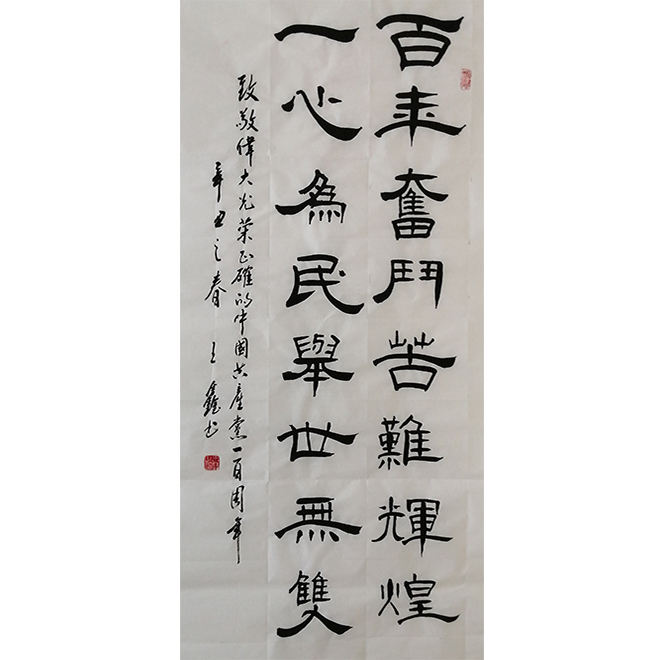 百年奮鬥苦難輝煌
一心為民舉世無雙
致敬偉大光榮正確的中国共產党一百周年
辛丑之春 王鑫书